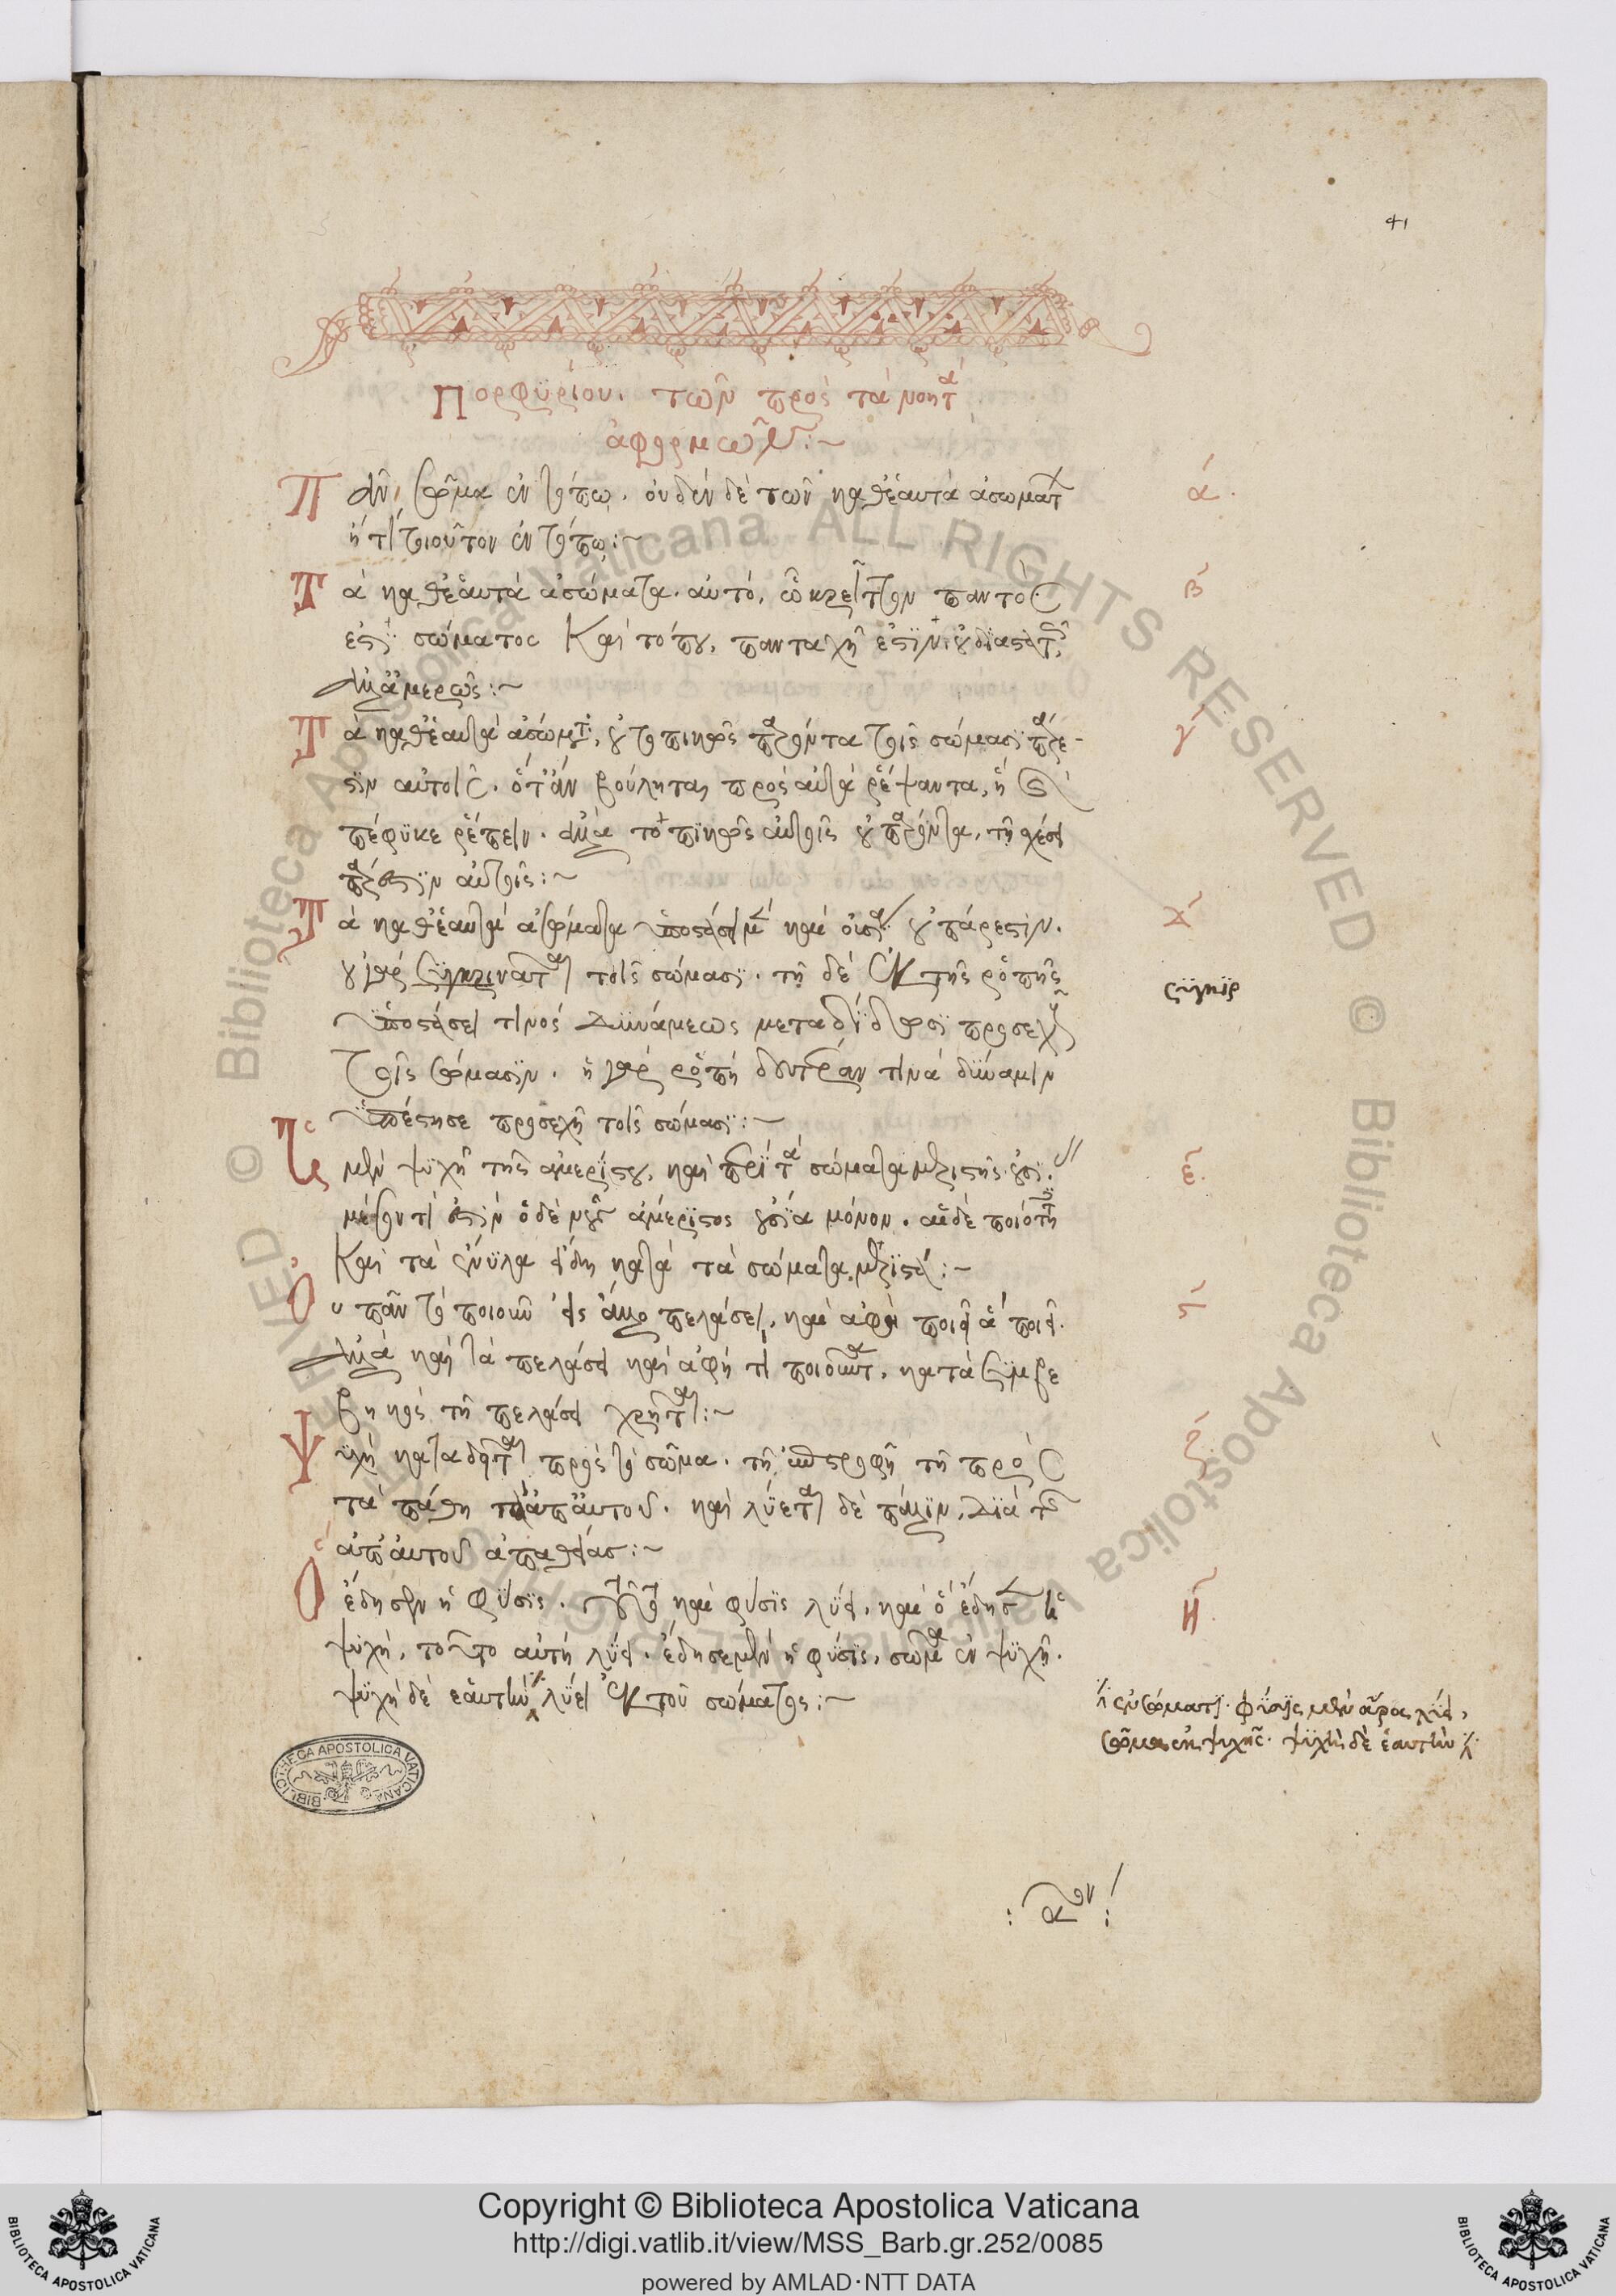 41
Πορφυρίου. τῶν πρὸς τὰ νοητὰ
ἀφορμῶν :~
Πᾶν σῶμα ἐν τόπῳ. οὐδὲν δὲ τῶν καθ' ἑαυτὰ ἀσωμάτων
ἤ τι τοιοῦτον ἐν τόπῳ :~
α.
Τὰ καθ' ἑαυτὰ ἀσώματα. αὐτὸ, ᾧ κρεῖττον παντὸς
ἐστὶ σώματος καὶ τόπου, πανταχῆ ἐστὶν. οὐ διαστατῶς,
ἀλλ' ἀμερῶς :~
β
Τὰ καθ' ἑαυτὰ ἀσώματα, οὐ τοπικῶς παρόντα τοῖς σώμασι πάρε-
στιν αὐτοῖς. ὅτ' ἂν βούληται πρὸς αὐτὰ ῥέψαντα, ἢ
πέφυκε ῥέπειν. ἀλλὰ τοπικῶς αὐτοῖς οὐ παρόντα, τῇ σχέσει
πάρεστιν αὐτοῖς :~
γ
Τὰ καθ' ἑαυτὰ ἀσώματα ὑποστάσει μὲν καὶ οὐσίᾳ οὐ πάρεστιν.
οὐ γὰρ συγκιρνᾶται τοῖς σώμασι. τῇ δὲ ἐκ τῆς ῥοπῆς
ὑποστάσει τινὸς δυνάμεως μεταδίδωσι προσεχοῦς
τοῖς σώμασιν. ἡ γὰρ ῥοπὴ δευτέραν τινὰ δύναμιν
ὑπέστησε προσεχῆ τοῖς σώμασι :~
δ
συγκιρ
Ἡ μὲν ψυχὴ τῆς ἀμερίστου, καὶ περὶ τὰ σώματα μεριστῆς οὐσίας
μέσον τί ἐστιν ὁ δὲ νοῦς ἀμέριστος οὐσία μόνον. αἱ δὲ ποιότητες
καὶ τὰ ἔνυλα εἴδη κατὰ τὰ σώματα μεριστὰ :~
ε.
Οὐ πᾶν τὸ ποιοῦν εἰς ἄλλο πελάσει, καὶ ἁφῇ ποιεῖ ἃ ποιεῖ.
ἀλλὰ καὶ τὰ πελάσει καὶ ἁφῇ τι ποιοῦντα, κατὰ συμβε
βηκὸς τῇ πελάσει χρῆται :~
Ψυχὴ καταδεῖται πρὸς τὸ σῶμα. τῇ ἐπιστροφῇ τῇ πρὸς
τὰ πάθη τὰ ἀπ' αὐτοῦ. καὶ λύεται δὲ πάλιν, διὰ τῆς
ἀπ' αὐτοῦ ἀπαθείας :~
ζ.
Ὃ ἔδησεν ἡ φύσις. τοῦτο καὶ φύσις λύει, καὶ ὃ ἔδησεν ἡ
ψυχὴ, τοῦτο αὐτὴ λύει. ἔδησε μὲν ἡ φύσις, σῶμα ἐν ψυχῇ.
ψυχὴ δὲ ἑαυτὴν λύει ἐκ τοῦ σώματος :~
η.
ἐν σώματι. φύσις μὲν ἄρα λύει,
σῶμα ἐκ ψυχῆς. ψυχὴ δὲ ἑαυτὴν
BIBLIOTECA APOSTOLICA VATICANA
© Biblioteca Apostolica Vaticana ALL RIGHTS RESERVED
Copyright © Biblioteca Apostolica Vaticana
http://digi.vatlib.it/view/MSS_Barb.gr.252/0085
powered by AMLAD·NTT DATA